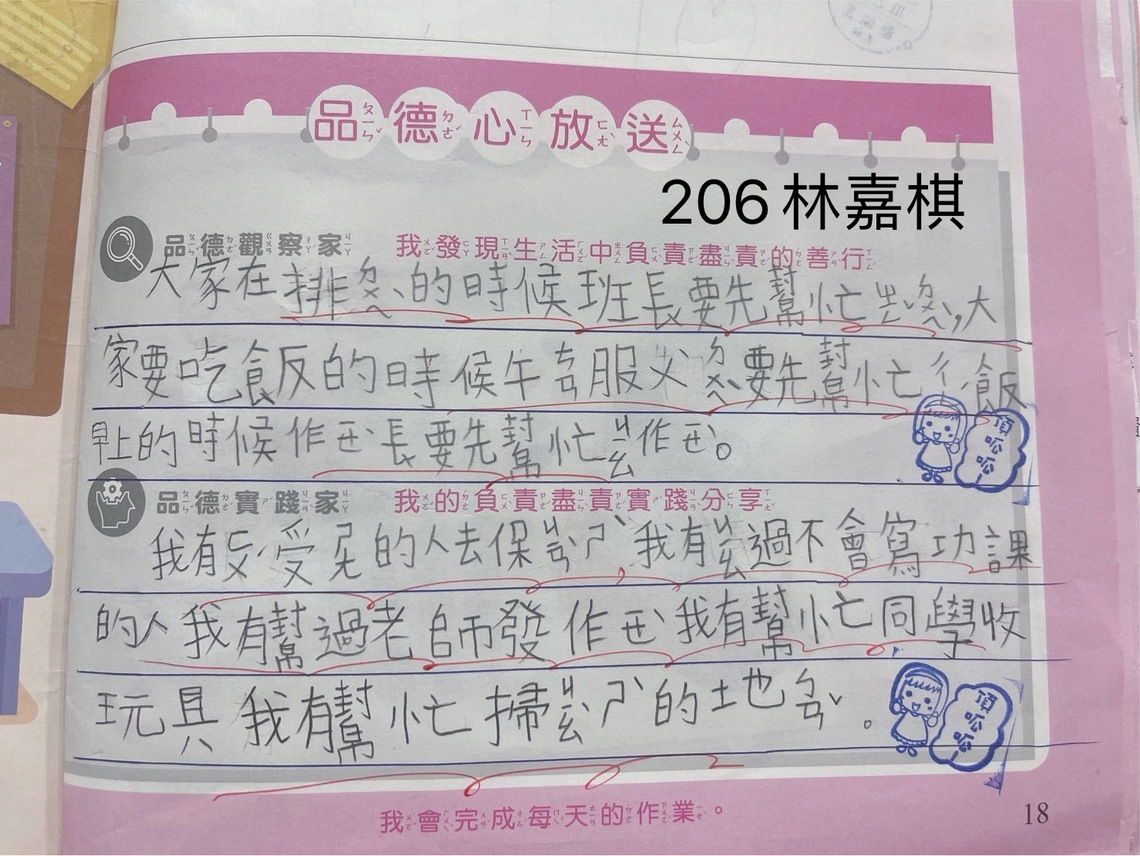 品德心放送
206 林嘉棋
品德觀察家 我發現生活中負責盡責的善行
大家在排ㄉㄨㄟˋ的時候班長要先幫忙ㄓㄥˇㄉㄨㄟˋ,大
家要吃飯的時候午ㄘㄢ服ㄨˋ要先幫忙ㄔㄥˊ飯
早上的時候作ㄧㄝˋ長要先幫忙ㄐㄧㄠ作ㄧㄝˋ。
頂呱呱
品德實踐家 我的負責盡責實踐分享
我有受的人去保我有過不會寫功課
的人我有幫過老師發作ㄧㄝˋ我有幫忙同學收
玩具我有幫忙掃的土地。
頂呱呱
我會完成每天的作業。
18